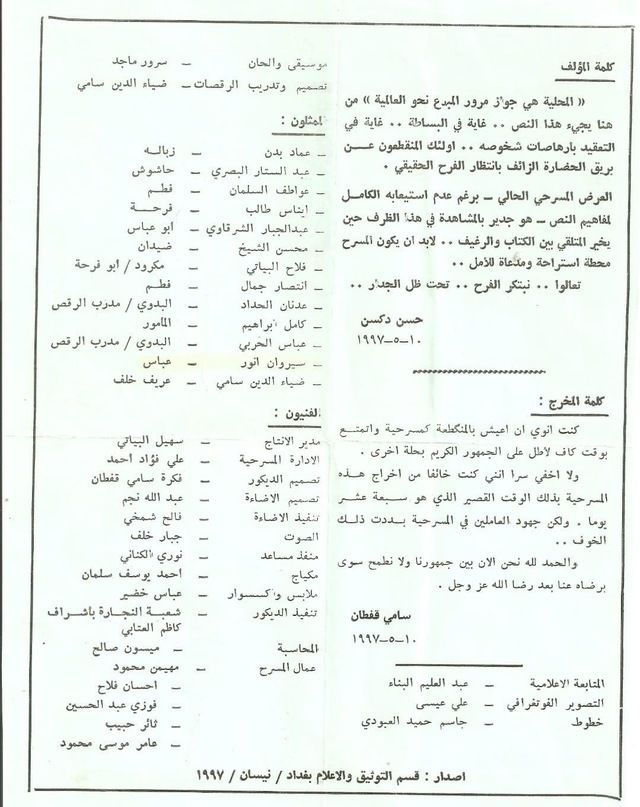 كلمة المؤلف
« المحلية هي جواز مرور المبدع نحو العالمية » من
هنا يجيء هذا النص . . غاية في البساطة . . غاية في
التعقيد بارهاصات شخوصه . . اولئك المنقطعون عــن
بريق الحضارة الزائف بانتظار الفرح الحقيقي .
العرض المسرحي الحالي ــ برغم عدم استيعابه الكامل
لمفاهيم النص ــ هو جدير بالمشاهدة في هذا الظرف حين
يخير المتلقي بين الكتاب والرغيف . . لابد ان يكون المسرح
محطة استراحة ومدعاة للأمل . .
تعالوا . . نبتكر الفرح . . تحت ظل الجدار . .
حسن دكسن
١٠-٥-١٩٩٧
كلمة المخرج :
كنت انوي ان اعيش بالمنكطعة كمسرحية واتمتــع
بوقت كاف لأطل على الجمهور الكريم بحلة اخرى .
ولا اخفي سرا انني كنت خائفا من اخراج هــذه
المسرحية بذلك الوقت القصير الذي هو سبعة عشــر
يوما . ولكن جهود العاملين في المسرحية بــددت ذلــك
الخوف . .
والحمد لله نحن الان بين جمهورنا ولا نطمح سوى
برضاه عنا بعد رضا الله عز وجل .
سامي قفطان
١٠-٥-١٩٩٧
المتابعة الاعلامية ــ عبد العليم البناء
التصوير الفوتغرافي ــ علي عيسى
خطوط ــ جاسم حميد العبودي
موسيقى والحان ــ سرور ماجد
تصميم وتدريب الرقصات ــ ضياء الدين سامي
الممثلون :
ــ عماد بدن ــ زبالــه
ــ عبد الستار البصري ــ حاشوش
ــ عواطف السلمان ــ فطــم
ــ ايناس طالب ــ فرحــة
ــ عبدالجبار الشرقاوي ــ ابو عباس
ــ محسن الشيخ ــ ضيدان
ــ فلاح البياتي ــ مكرود / ابو فرحة
ــ انتصار جمال ــ فطــم
ــ عدنان الحداد ــ البدوي / مدرب الرقص
ــ كامل ابراهيم ــ المامور
ــ عباس الحربي ــ البدوي / مدرب الرقص
ــ سيروان انور ــ عباس
ــ ضياء الدين سامي ــ عريف خلف
الفنيون :
مدير الانتاج ــ سهيل البياتي
الادارة المسرحية ــ علي فؤاد احمد
تصميم الديكور ــ فكرة سامي قفطان
تصميم الاضاءة ــ عبد الله نجم
تنفيذ الاضاءة ــ فالح شمخي
الصوت ــ جبار خلف
منفذ مساعد ــ نوري الكناني
مكياج ــ احمد يوسف سلمان
ملابس واكسسوار ــ عباس خضير
تنفيذ الديكور ــ شعبــة النجارة باشــراف
كاظم العتابي
المحاسبة ــ ميسون صالح
عمال المسرح ــ مهيمن محمود
ــ احسان فلاح
ــ فوزي عبد الحسين
ــ ثائر حبيب
ــ عامر موسى محمود
اصدار : قسم التوثيق والاعلام بغداد / نيسان / ١٩٩٧